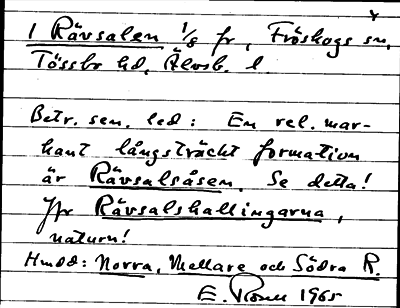 1 Rävsalen 1/8 fr, Fröskogs sn,
Tössbo hd, Älvsb. l.
Betr. sen. led: En rel. mar-
kant långsträckt formation
är Rävsalsåsen. Se detta!
Jfr Rävsalshallingarna,
naturn!
Hmdd: Norra, Mellare och Södra R.
E. 1965